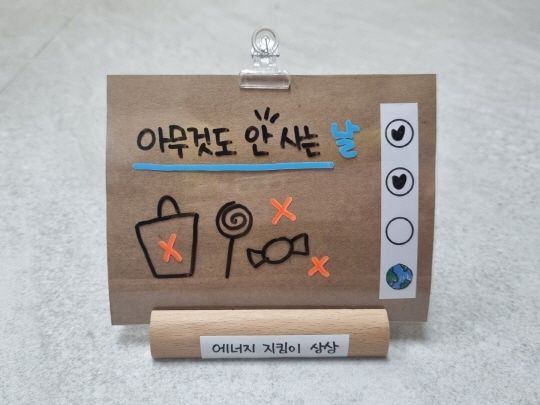 아무것도 안 사는 날
에너지 지킴이 상상